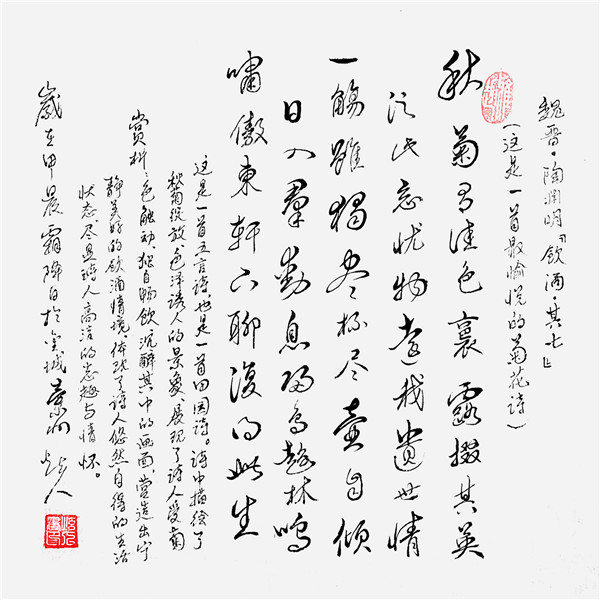 魏晋·陶渊明『饮酒·其七』
(这是一首最愉悦的菊花诗)
秋菊有佳色裛露掇其英
泛此忘忧物遠我遗世情
一觴雖獨尽杯尽壶自倾
日入羣動息归鸟趋林鸣
嘯傲東軒下聊復得此生
这是一首五言诗也是一首田园诗。诗中描绘了
秋菊绽放、色泽诱人的景象,展现了诗人爱菊
赏析:色触动、独自畅饮沉醉其中的画面,营造出宁
静美好的饮酒情境,体现了诗人悠然自得的生活
状态尽显诗人高洁的志趣与情怀。
歲在甲辰霜降日於金城